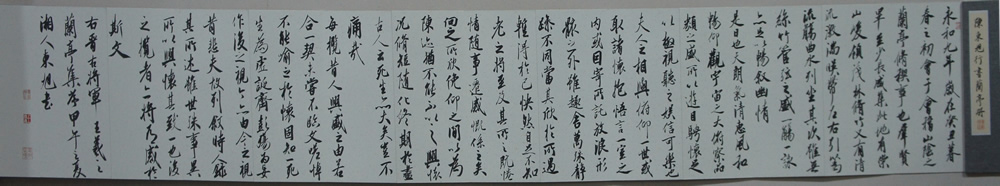 陳東旭行書蘭亭序
永和九年歲在癸丑暮
春之初會于會稽山陰之
蘭亭脩稧事也羣賢
畢至少長咸集此地有崇
山峻領茂林脩竹又有清
流激湍暎帶左右引以為
流觴曲水列坐其次雖無
絲竹管弦之盛一觴一詠
亦足以暢敘幽情
是日也天朗氣清惠風和
暢仰觀宇宙之大俯察品
類之盛所以遊目騁懷足
以極視聽之娛信可樂也
夫人之相與俯仰一世或
取諸懷抱悟言一室之
內或因寄所託放浪形
骸之外雖趣舍萬殊靜
躁不同當其欣於所遇
輙得於己快然自足不知
老之將至及其所之既惓
情隨事遷感慨係之矣
向之所欣俛仰之間以為
陳迹猶不能不以之興懷
況脩短隨化終期於盡
古人云死生亦大矣豈不
痛哉
每攬昔人興感之由若
合一契未嘗不臨文嗟悼
不能喻之於懷固知一死
生為虛誕齊彭殤為妄
作後之視今亦由今之視
昔悲夫故列敘時人錄
其所述雖世殊事異
所以興懷其致一也後
之攬者亦將有感於
斯文
右晉右將軍王羲之
蘭亭集序甲午之夏
湘人東旭書